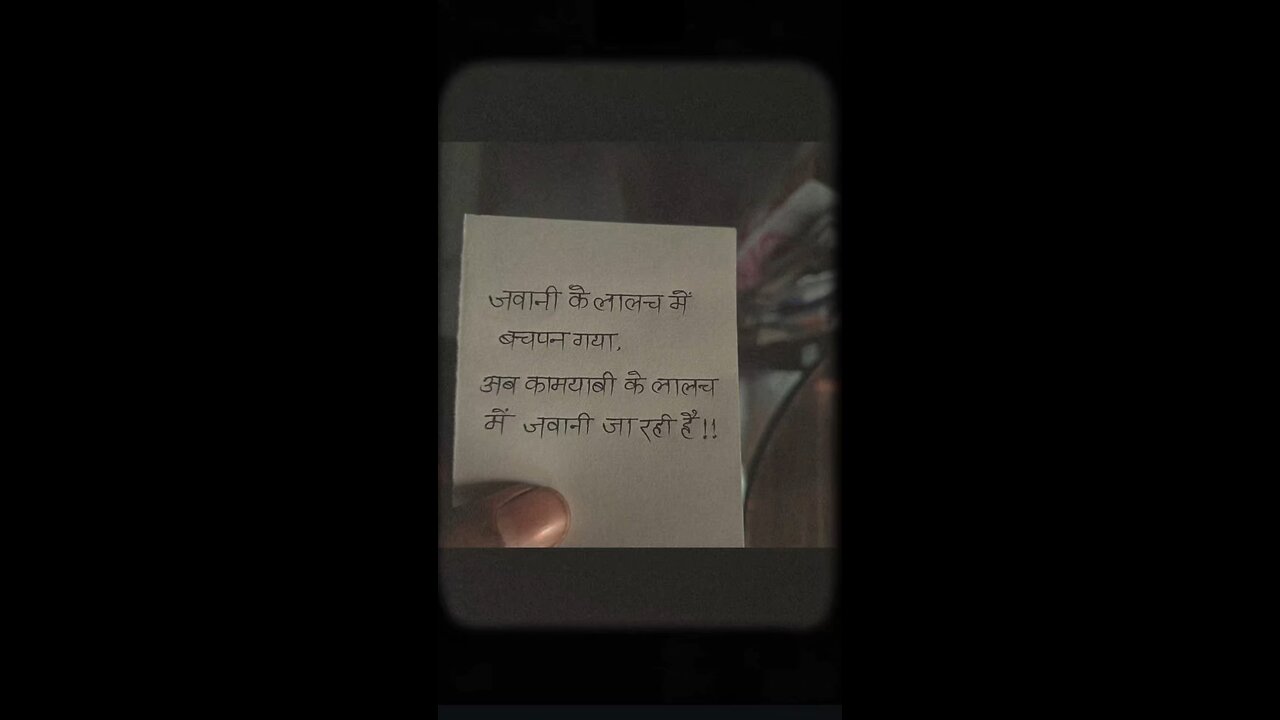 जवानी के लालच में
बचपन गया,
अब कामयाबी के लालच
में जवानी जा रही है!!